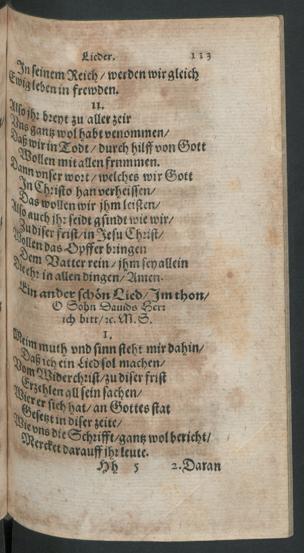 Lieder. 113
In seinem Reich / werden wir gleich
Ewig leben in frewden.
11.
Also jhr breyt zu aller zeit
Vns gantz wol habt venommen /
Daß wir in Todt / durch hilff von Gott
Wollen mit allen frummen.
Dann vnser wort / welches wir Gott
In Christo han verheissen /
Das wollen wir jhm leisten /
Also auch jhr seidt gsindt wie wir /
Zu diser frist / in Jesu Christ /
Wollen das Opffer bringen
Dem Vatter rein / jhm sey allein
Die ehr in allen dingen / Amen.
Ein ander schön Lied / Im thon /
O Sohn Dauids Herr
ich bitt / ꝛc. M. S.
1.
Meim muth vnd sinn steht mir dahin /
Daß ich ein Lied sol machen /
Vom Widerchrist / zu diser frist
Erzehlen all sein sachen /
Wie er sich hat / an Gottes stat
Gesetzt in diser zeite /
Wie vns die Schrifft / gantz wol bericht /
Mercket darauff jhr leute.
Hh 5 2. Daran